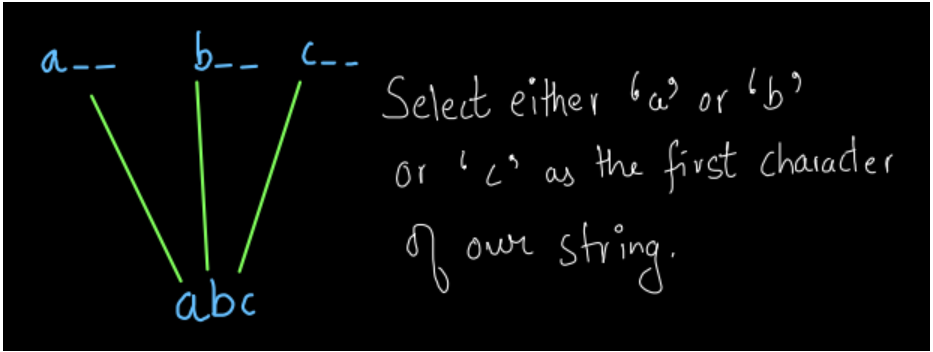 a-- b-- c--
Select either 'a' or 'b'
or 'c' as the first character
of our string.
abc